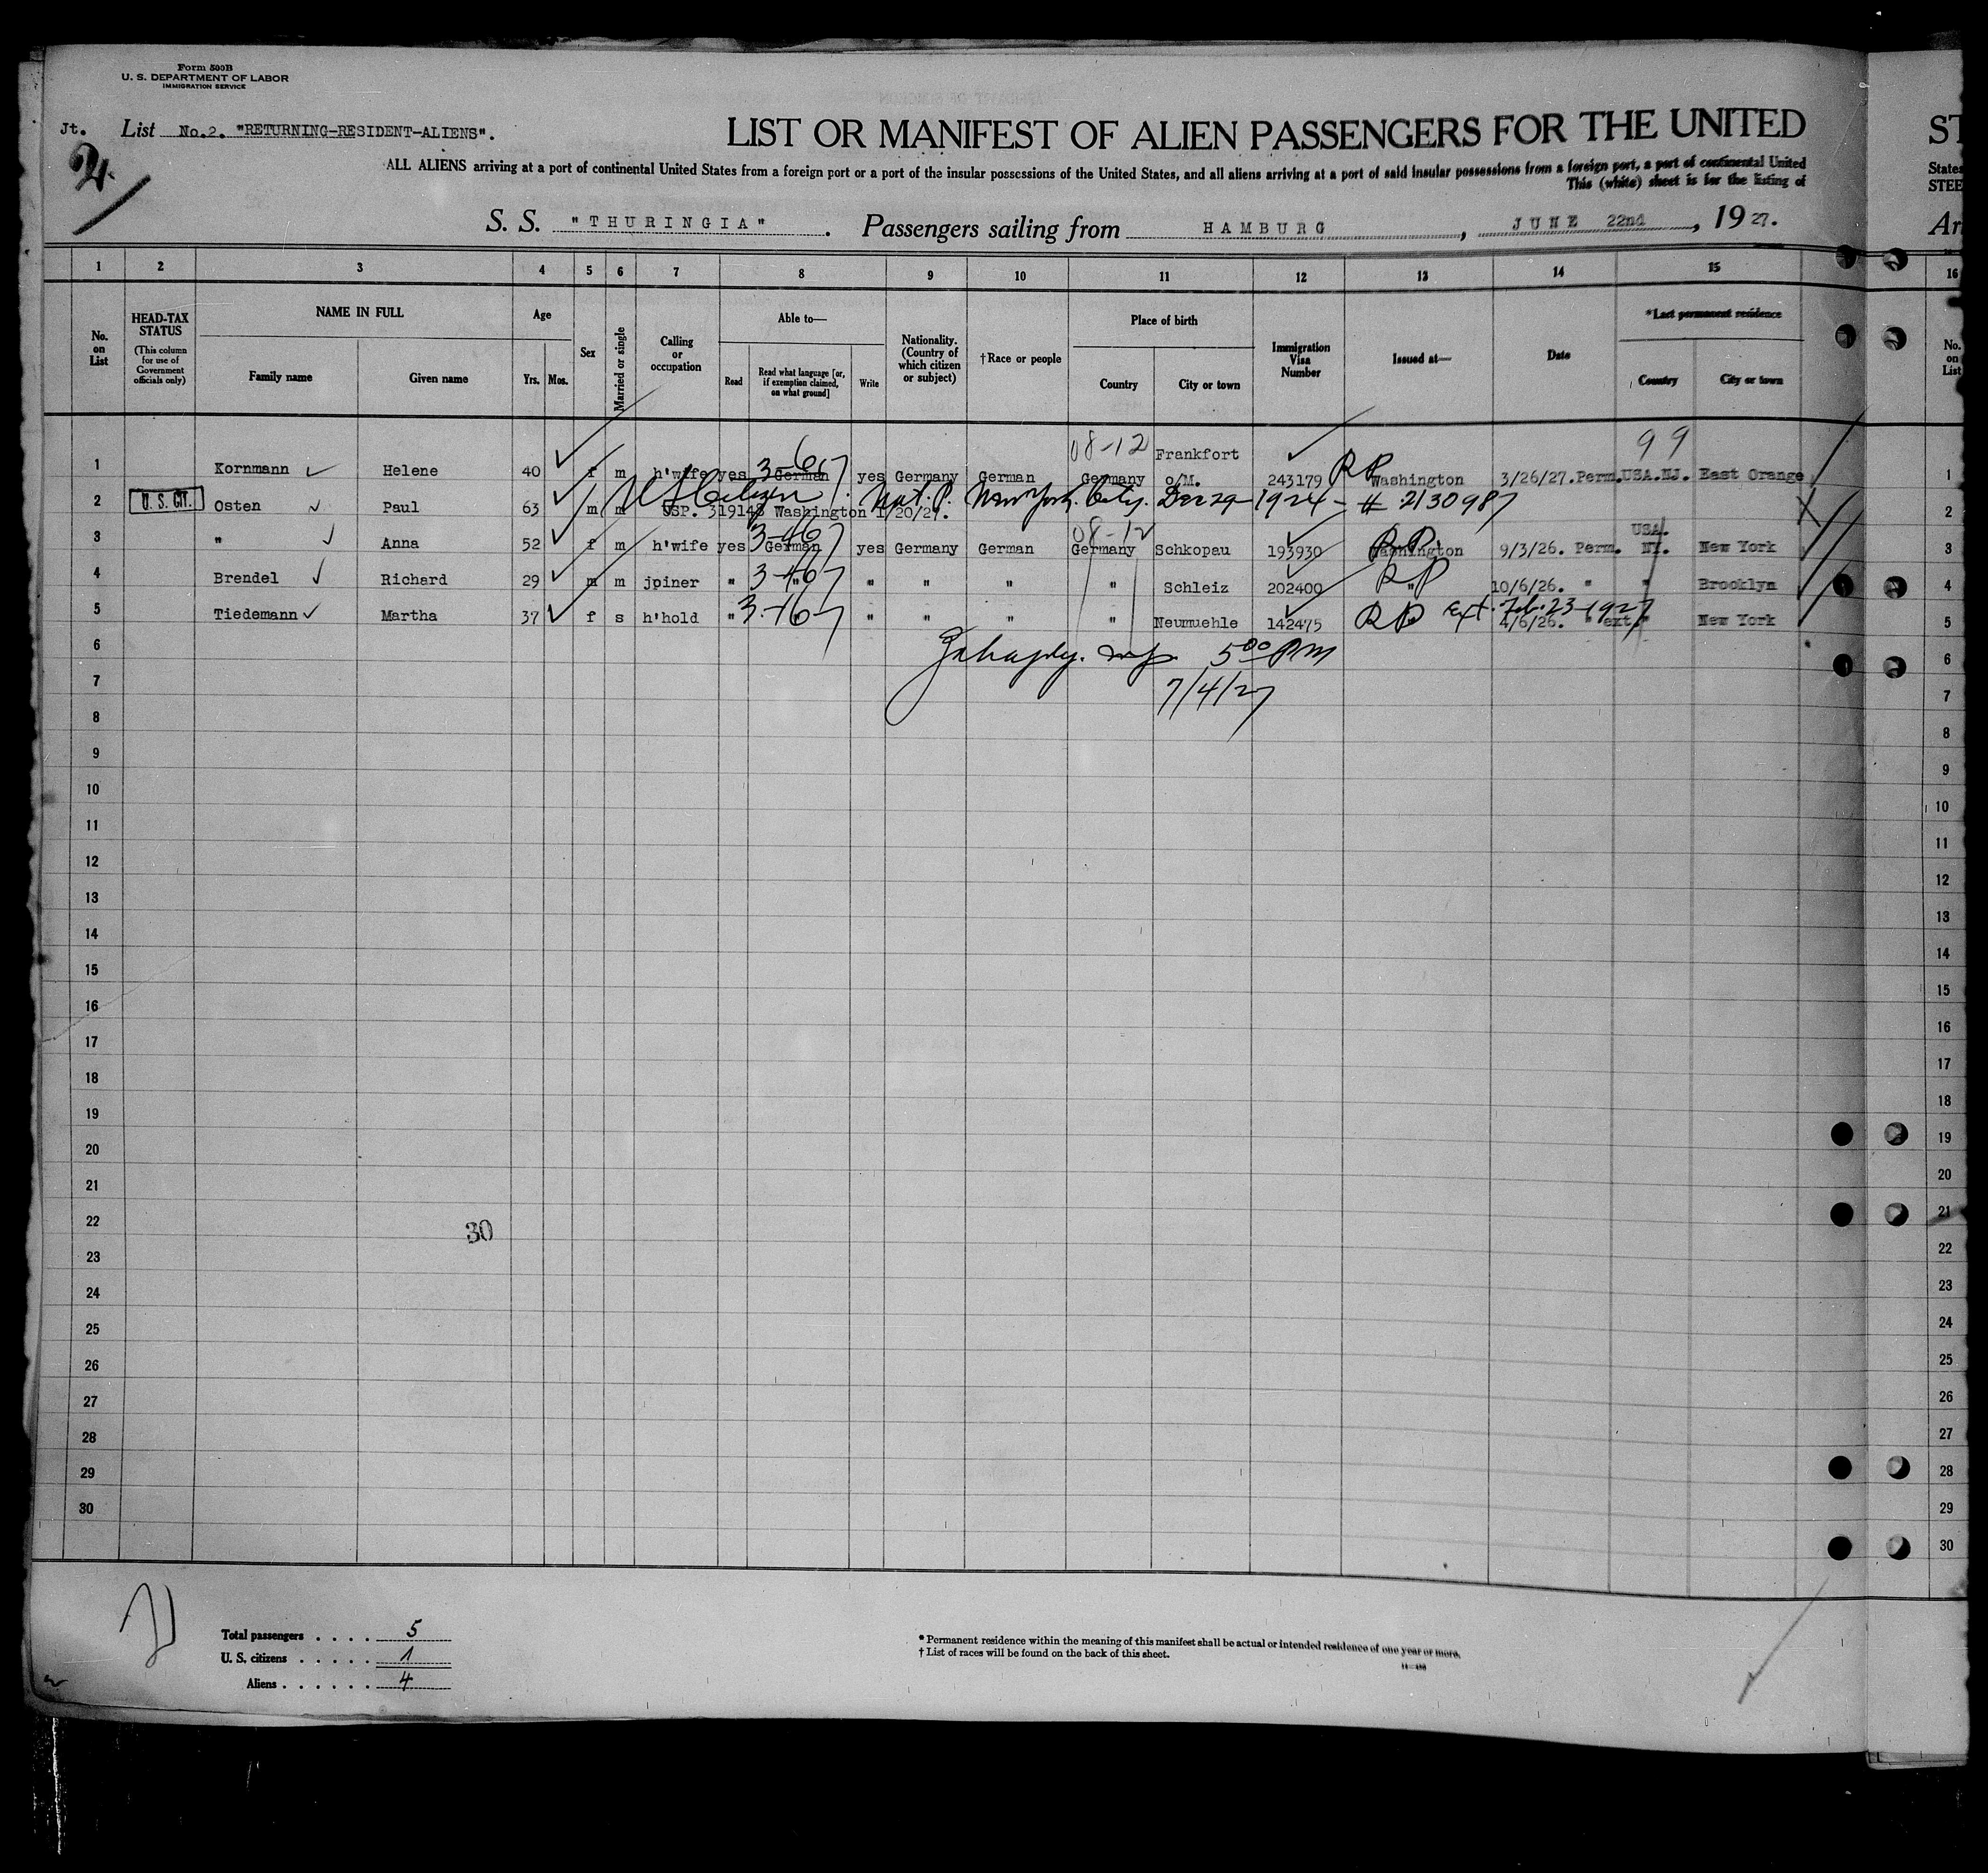 Form 500B
U. S. DEPARTMENT OF LABOR
IMMIGRATION SERVICE
Jt. List No.2. "RETURNING-RESIDENT-ALIENS".
2.
LIST OR MANIFEST OF ALIEN PASSENGERS FOR THE UNITED
ALL ALIENS arriving at a port of continental United States from a foreign port or a port of the insular possessions of the United States, and all aliens arriving at a port of said insular possessions from a foreign port, a port of continental United
This (white) sheet is for the listing of
S. S. "THURINGIA". Passengers sailing from HAMBURG, JUNE 22nd, 1927.
ST
States
STEE
Ar
1 2 3 4 5 6 7 8 9 10 11 12 13 14 15 16
No. on List
HEAD-TAX STATUS (This column for use of Government officials only)
NAME IN FULL
Family name Given name
Age
Yrs. Mos.
Sex
Married or single
Calling or occupation
Able to—
Read Read what language [or, if exemption claimed, on what ground] Write
Nationality. (Country of which citizen or subject)
†Race or people
Place of birth
Country City or town
Immigration Visa Number
Issued at—
Date
*Last permanent residence
Country City or town
No. on List
08-12 99
1 Kornmann Helene 40 f m h'wife yes German 3-67 yes Germany German Germany Frankfort o/M. 243179 RP Washington 3/26/27. Perm. USA.NJ. East Orange 1
2 U. S. CIT. Osten Paul 63 m m USP. 319148 Washington 1/20/27. US Citizen Nat. P. New York City. Dec 29-1924 - # 2130987 2
08-12
3 " Anna 52 f m h'wife yes German 3-467 yes Germany German Germany Schkopau 193930 RP Washington 9/3/26. Perm. USA. NY. New York 3
4 Brendel Richard 29 m m jpiner " " 3-467 " " " " Schleiz 202400 RP " 10/6/26. " " Brooklyn 4
5 Tiedemann Martha 37 f s h'hold " 3-167 " " " " Neumuehle 142475 RP Ext. Feb. 23-1927 4/6/26. " ext. " New York 5
6 5 00 PM 6
7 7/4/27 7
8 8
9 9
10 10
11 11
12 12
13 13
14 14
15 15
16 16
17 17
18 18
19 19
20 20
21 21
22 30 22
23 23
24 24
25 25
26 26
27 27
28 28
29 29
30 30
Total passengers . . . . 5
U. S. citizens . . . . . 1
Aliens . . . . . . 4
* Permanent residence within the meaning of this manifest shall be actual or intended residence of one year or more.
† List of races will be found on the back of this sheet.